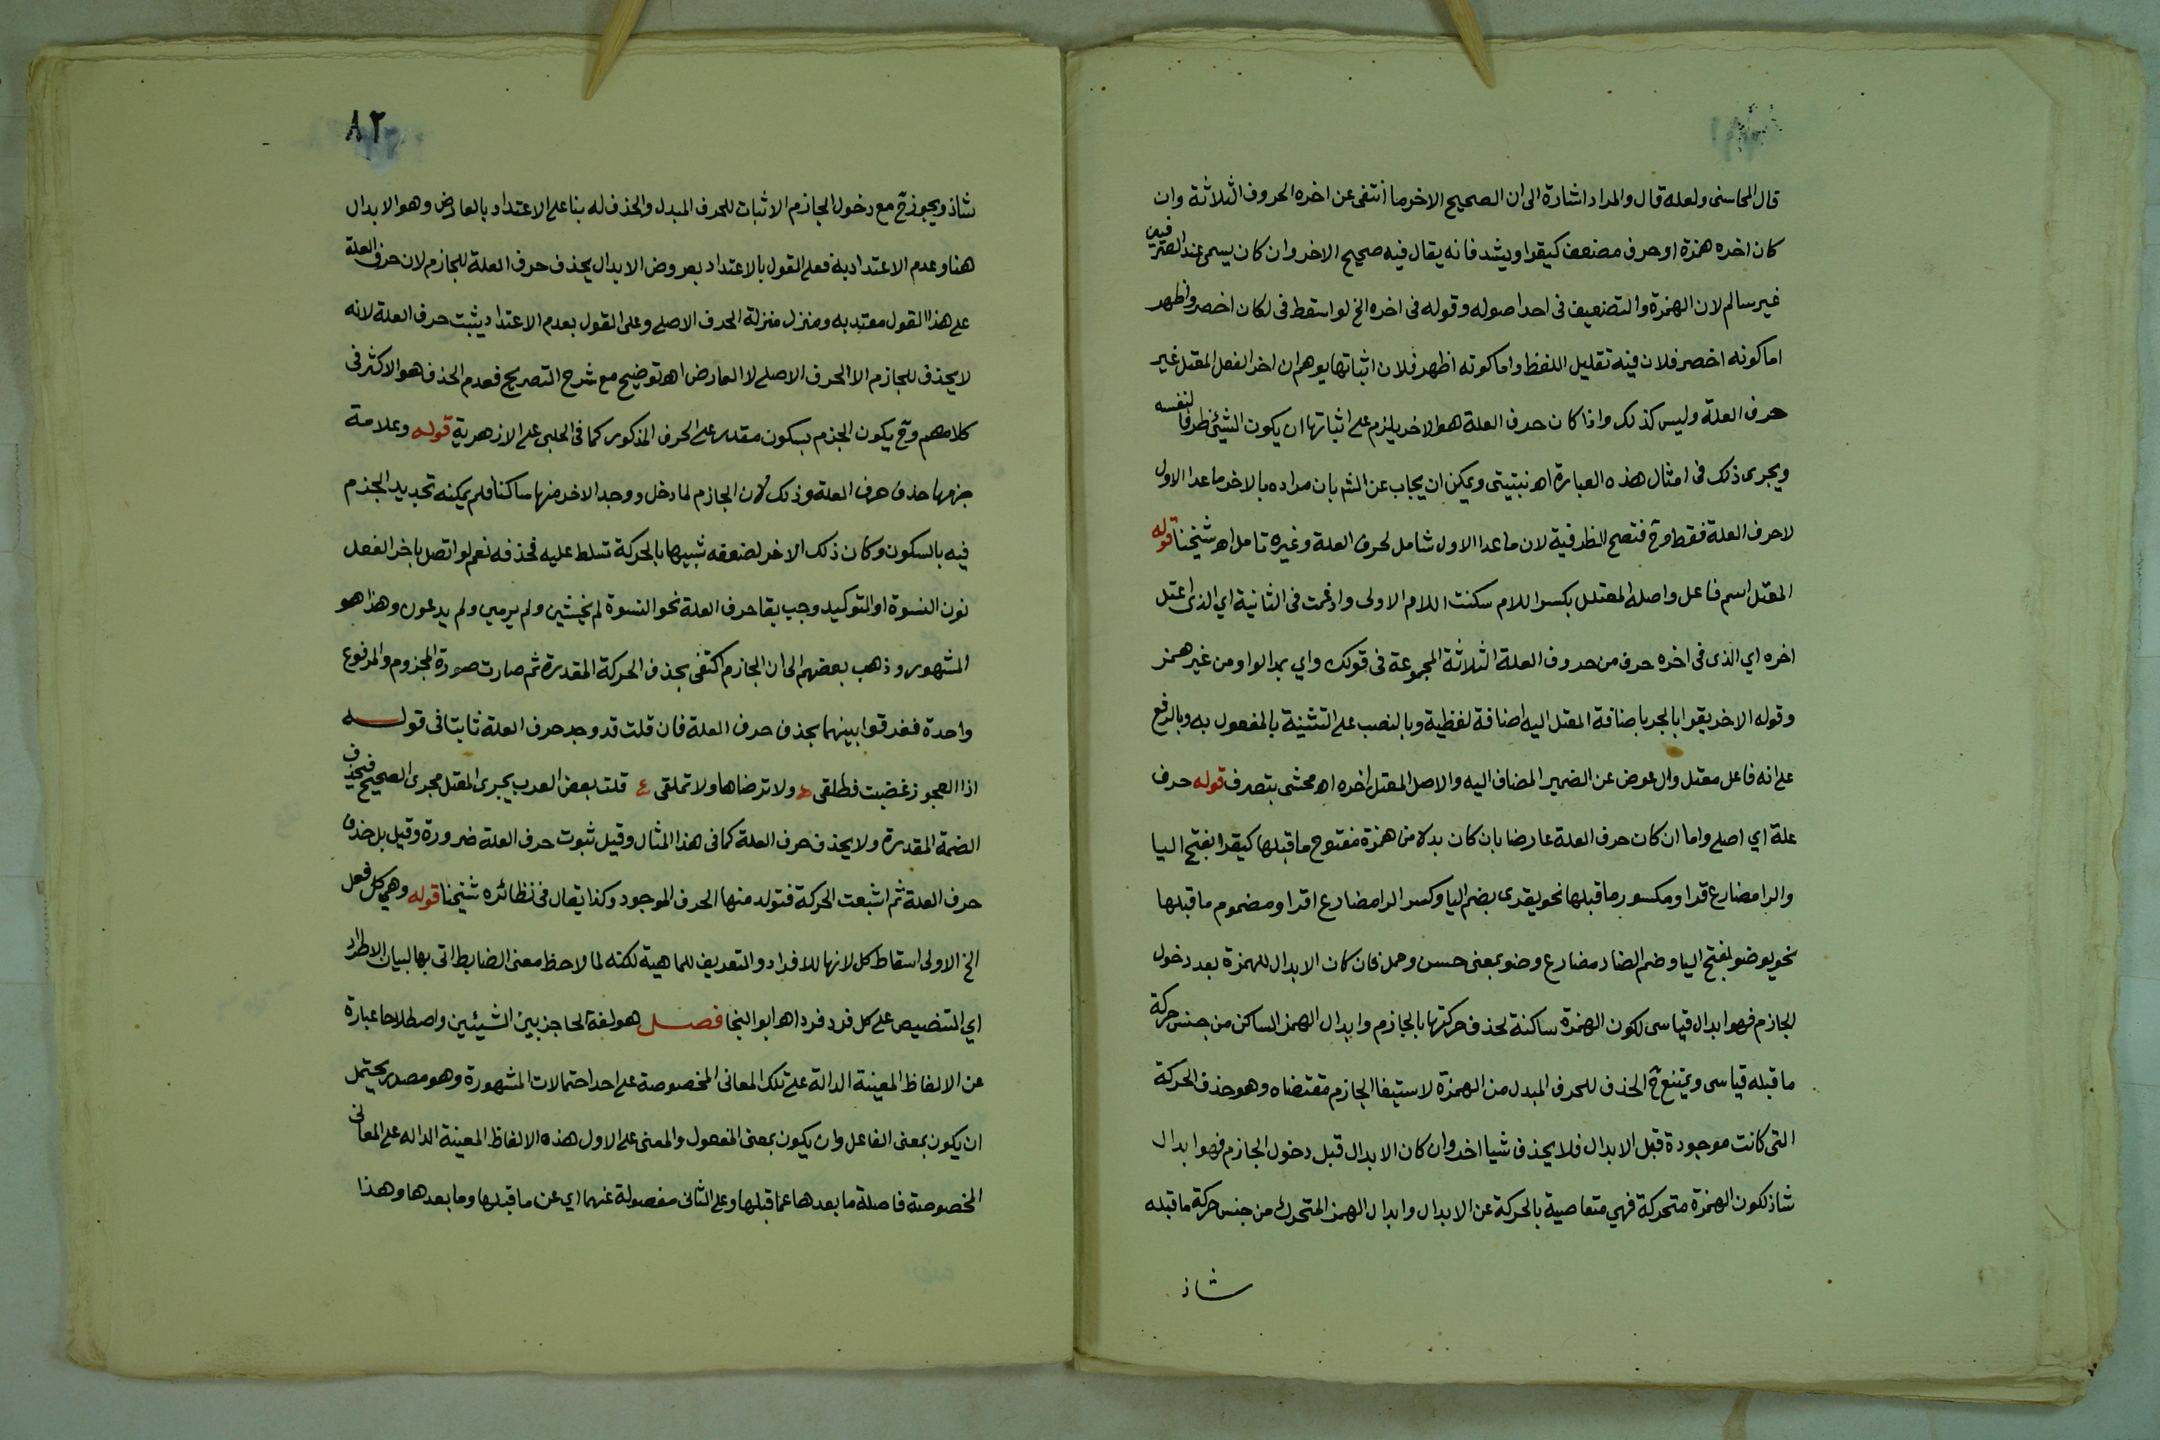 قال المحاسنى ولعله قال والمراد اشارة الى ان الصحيح الاخر ما انتفى عن اخره الحروف الثلاثة وان
كان اخره همزة او حرف مضعف كيقرا ويشد فانه يقال فيه صحيح الاخر وان كان يسمى عند الصرفيين
غير سالم لان الهمزة والتضعيف فى احد اصوله وقوله فى اخره الخ لو اسقط فى لكان اخصر واظهر
اما كونه اخصر فلان فيه تقليل اللفظ واما كونه اظهر فلان اثباتها يوهم ان اخر الفعل المقتل غير
حرف العلة وليس كذلك واذا كان حرف العلة هو الاخر يلزم على اثباتها ان يكون الشيئ ظرفا لنفسه
ويجرى ذلك فى امثال هذه العبارة اه نبتيتى ويمكن ان يجاب عن الشم بان مراده بالاخر ما عدا الاول
لا حرف العلة فقط وح فتصح الظرفية لان ما عدا الاول شامل لحرف العلة وغيره تامل اه شيخنا قوله
المعتل اسم فاعل واصله المعتلل بكسر اللام سكنت اللام الاولى وادغمت فى الثانية اي الذى اعتل
اخره اي الذى فى اخره حرف من حروف العلة الثلاثة المجموعة فى قولك واي بمد الواو من غير همز
وقوله الاخر يقرا بالجر باضافة المعتل اليه اضافة لفظية وبالنصب على التشبيه بالمفعول به وبالرفع
على انه فاعل معتل وال عوض عن الضمير المضاف اليه والاصل المعتل اخره اه محشى بتصرف قوله حرف
علة اي اصلى واما ان كان حرف العلة عارضا بان كان بدلا من همزة مفتوح ما قبلها كيقرا بفتح اليا
والرا مضارع قرا ومكسور ما قبلها نحو يقرى بضم اليا وكسر الرا مضارع اقرا ومضموم ما قبلها
نحو يوضو بفتح اليا وضم الضاد مضارع وضو بمعنى حسن وجمل فان كان الابدال للهمزة بعد دخول
الجازم فهو ابدال قياسى لكون الهمزة ساكنة لحذف حركتها بالجازم وابدال الهمز الساكن من جنس حركة
ما قبله قياسى ويمتنع ح الحذف للحرف المبدل من الهمزة لاستيفا الجازم مقتضاه وهو حذف الحركة
التى كانت موجودة قبل الابدال فلا يحذف شيا اخر وان كان الابدال قبل دخول الجازم فهو ابدال
شاذ لكون الهمزة متحركة فهي متعاصية بالحركة عن الابدال وابدال الهمز المتحرك من جنس حركة ما قبله
شاذ
٨٢
شاذ ويجوز ح مع دخول الجازم الاثبات للحرف المبدل والحذف له بنا على الاعتداد بالعارض وهو الابدال
هنا وعدم الاعتداد به فعلى القول بالاعتداد بعروض الابدال يحذف حرف العلة للجازم لان حرف العلة
على هذا القول معتد به ومنزل منزلة الحرف الاصلى وعلى القول بعدم الاعتداد يثبت حرف العلة لانه
لا يحذف للجازم الا الحرف الاصلى لا العارض اه توضيح مع شرح التصريح فعدم الحذف هو الاكثر فى
كلامهم وح يكون الجزم بسكون مقدر على الحرف المذكور كما فى الحلبى على الازهرية قوله وعلامة
جزمها حذف حرف العلة وذلك لان الجازم لما دخل ووجد الاخر منها ساكنا فلم يمكنه تجديد الجزم
فيه بالسكون وكان ذلك الاخر لضعفه شبيها بالحركة تسلط عليه فحذفه نعم لو اتصل باخر الفعل
نون النسوة او التوكيد وجب بقا حرف العلة نحو النسوة لم يخشين ولم يرمين ولم يدعون وهذا هو
المشهور وذهب بعضهم الى ان الجازم اكتفى بحذف الحركة المقدرة ثم صارت صورة المجزوم والمرفوع
واحدة ففرقوا بينهما بحذف حرف العلة فان قلت قد وجد حرف العلة ثابتا فى قوله
اذا العجوز غضبت فطلقى ولا ترضاها ولا تملقى قلت بعض العرب يجرى المعتل مجرى الصحيح فيحذف
الضمة المقدرة ولا يحذف حرف العلة كما فى هذا المثال وقيل ثبوت حرف العلة ضرورة وقيل بل حذف
حرف العلة ثم اشبعت الحركة فتولد منها الحرف الموجود وكذا يقال فى نظائره شيخنا قوله وهي كل فعل
الخ الاولى اسقاط كل لانها للافراد والتعريف للماهية لكنه لما لاحظ معنى الضابط اتى بها لبيان الاطراد
اي التنصيص على كل فرد فرد اه ابو النجا فصل هو لغة الحاجز بين الشيئين واصطلاحا عبارة
عن الالفاظ المعينة الدالة على تلك المعانى المخصوصة على احد احتمالات المشهورة وهو مصدر يحتمل
ان يكون بمعنى الفاعل وان يكون بمعنى المفعول والمعنى على الاول هذه الالفاظ المعينة الداله على المعانى
المخصوصة فاصلة ما بعدها عما قبلها وعلى الثانى مفصولة عنهما اي عن ما قبلها وما بعدها وهذا